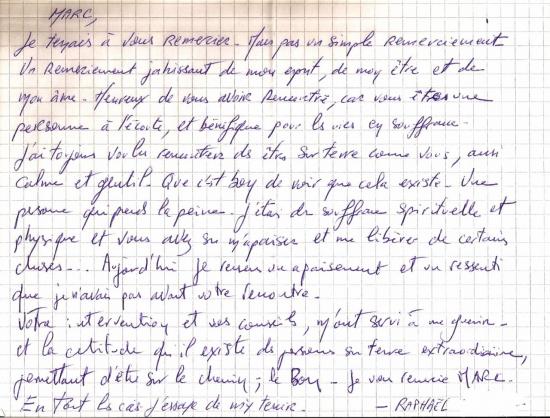 MARC,
Je tenais à vous remercier. Mais pas un simple remerciement
Un remerciement jaillissant de mon esprit, de mon être et de
mon âme. Heureux de vous avoir rencontré, car vous êtes une
personne à l'écoute, et bénéfique pour les vies en souffrance.
J'ai toujours voulu rencontrer des êtres sur terre comme vous, aussi
calme et gentil. Que c'est bon de voir que cela existe. Une
personne qui prend la peine. J'étais en souffrance spirituelle et
physique et vous avez su m'apaiser et me libérer de certains
choses... Aujourd'hui je ressens un apaisement et un ressenti
que je n'avais pas avant votre rencontre.
Votre intervention et vos conseils, m'ont servi à me guérir.
et la certitude qu'il existe des personnes sur terre extraordinaire,
permettant d'être sur le chemin ; le Bon. Je vous remercie MARC.
En tout les cas j'essaye de m'y tenir. — RAPHAËL